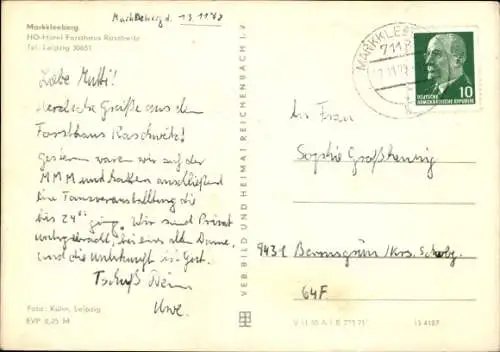 Markkleeberg
HO-Hotel Forsthaus Raschwitz
Tel. Leipzig 30651
Markkleeberg d. 13.11.73
Liebe Mutti!
Herzliche Grüße aus dem
Forsthaus Raschwitz!
Gestern waren wir auf der
MMM und hatten anschließend
eine Tanzveranstaltung die
bis 24°° ging. Wir sind Privat
untergebracht, bei einer alten Dame,
und die Unterkunft ist gut.
Tschüß Dein
Uwe.
Foto: Kühn, Leipzig
EVP 0,25 M
VEB BILD UND HEIMAT REICHENBACH I. V.
MARKKLEE
7113
10
DEUTSCHE
DEMOKRATISCHE REPUBLIK
An Frau
Sophie Großhennig
9431 Bermsgrün/Krs. Schwbg.
64F
V 11 50 A 1 B 773 71
13 4187